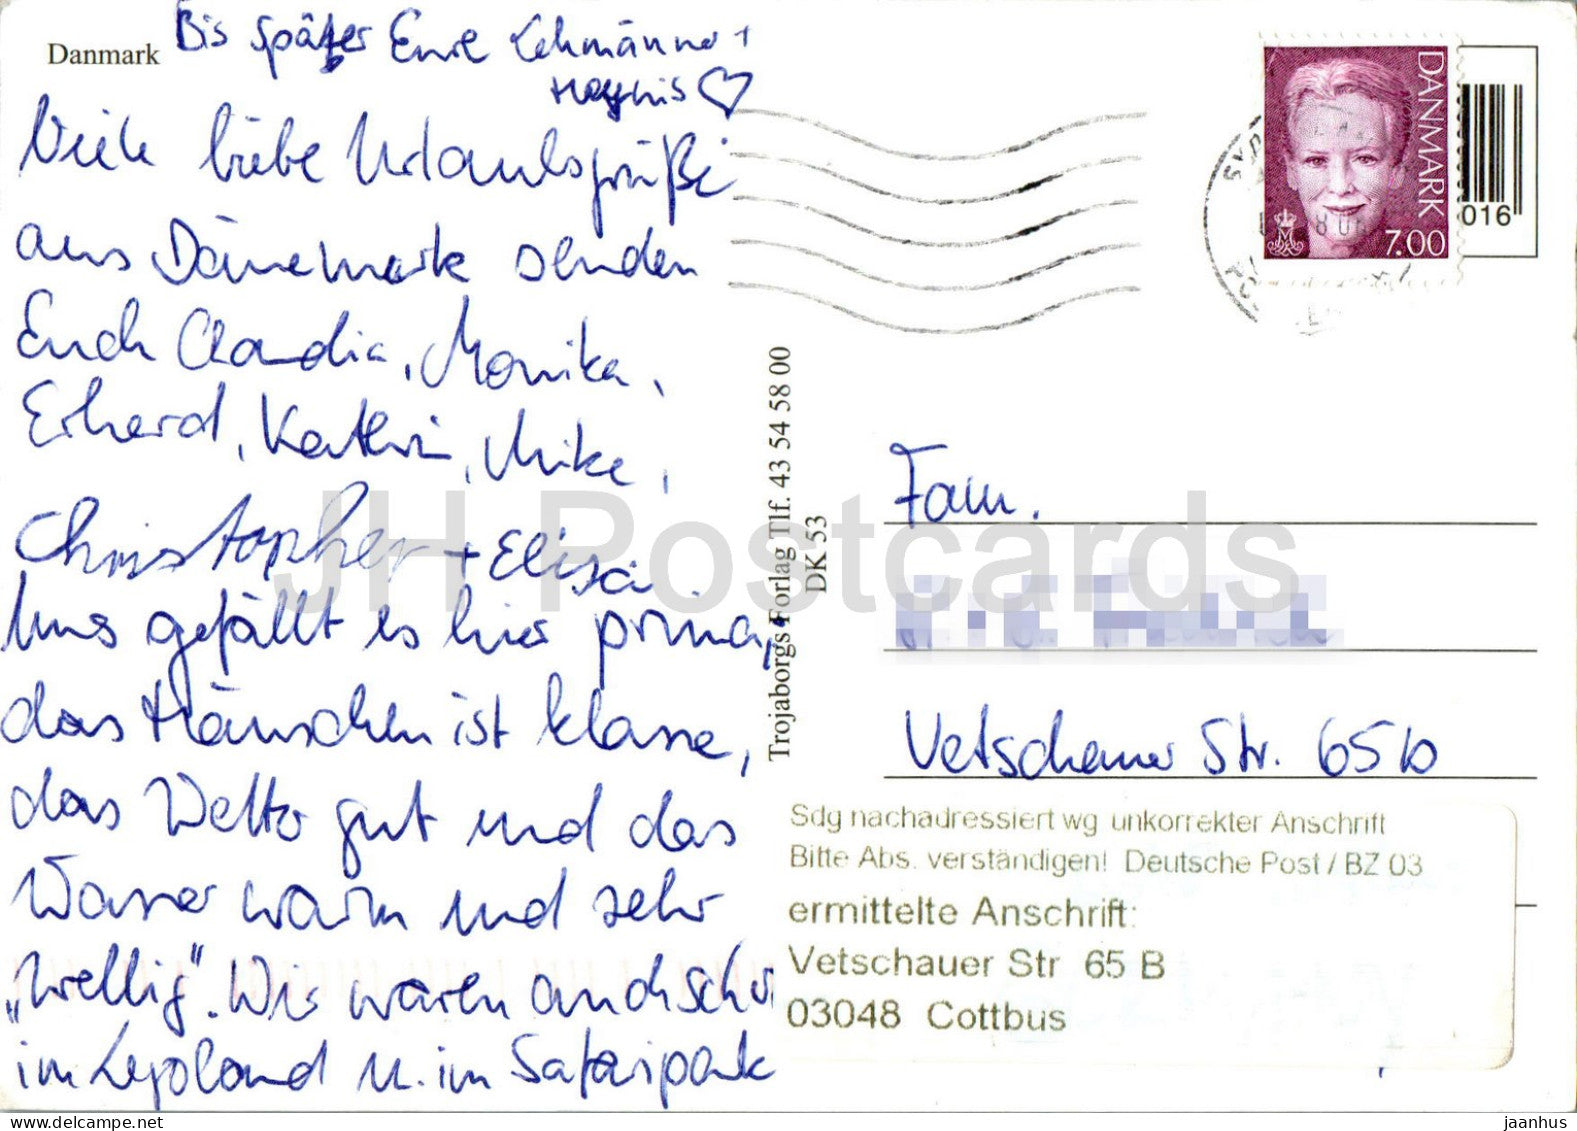 Danmark
Bis später Eure Lehmänner +
♡
Viele liebe Urlaubsgrüße
aus Dänemark senden
Euch Claudia, Monika,
Erhard, Kathrin, Mike,
Christopher + Elisa
Uns gefällt es hier prima,
das Häuschen ist klasse,
das Wetter gut und das
Wasser warm und sehr
„wellig". Wir waren auch schon
im Legoland u. im Safaripark
Trojaborgs Forlag Tlf. 43 54 58 00
DK 53
DANMARK
7.00
016
Fam.
Vetschauer Str. 65 b
Sdg nachadressiert wg unkorrekter Anschrift
Bitte Abs. verständigen! Deutsche Post / BZ 03
ermittelte Anschrift:
Vetschauer Str 65 B
03048 Cottbus
JH Postcards
jaanhus
delcampe.net